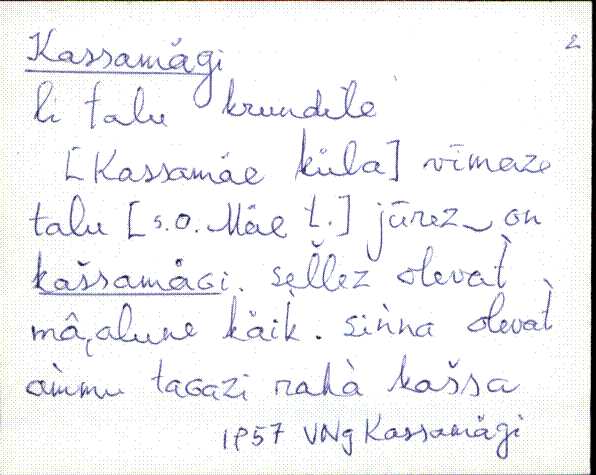 2
Kassamägi
li talu krundile
[Kassamäe küla] vīmaze
talu [s.o. Mäe t.] jūrez‿on
kašsamäGi. sellez olevat̀
mâ̬alune käik. siǹna olevat̀
am̀mu taGazi rahà kašsa
1957 VNg Kassamägi